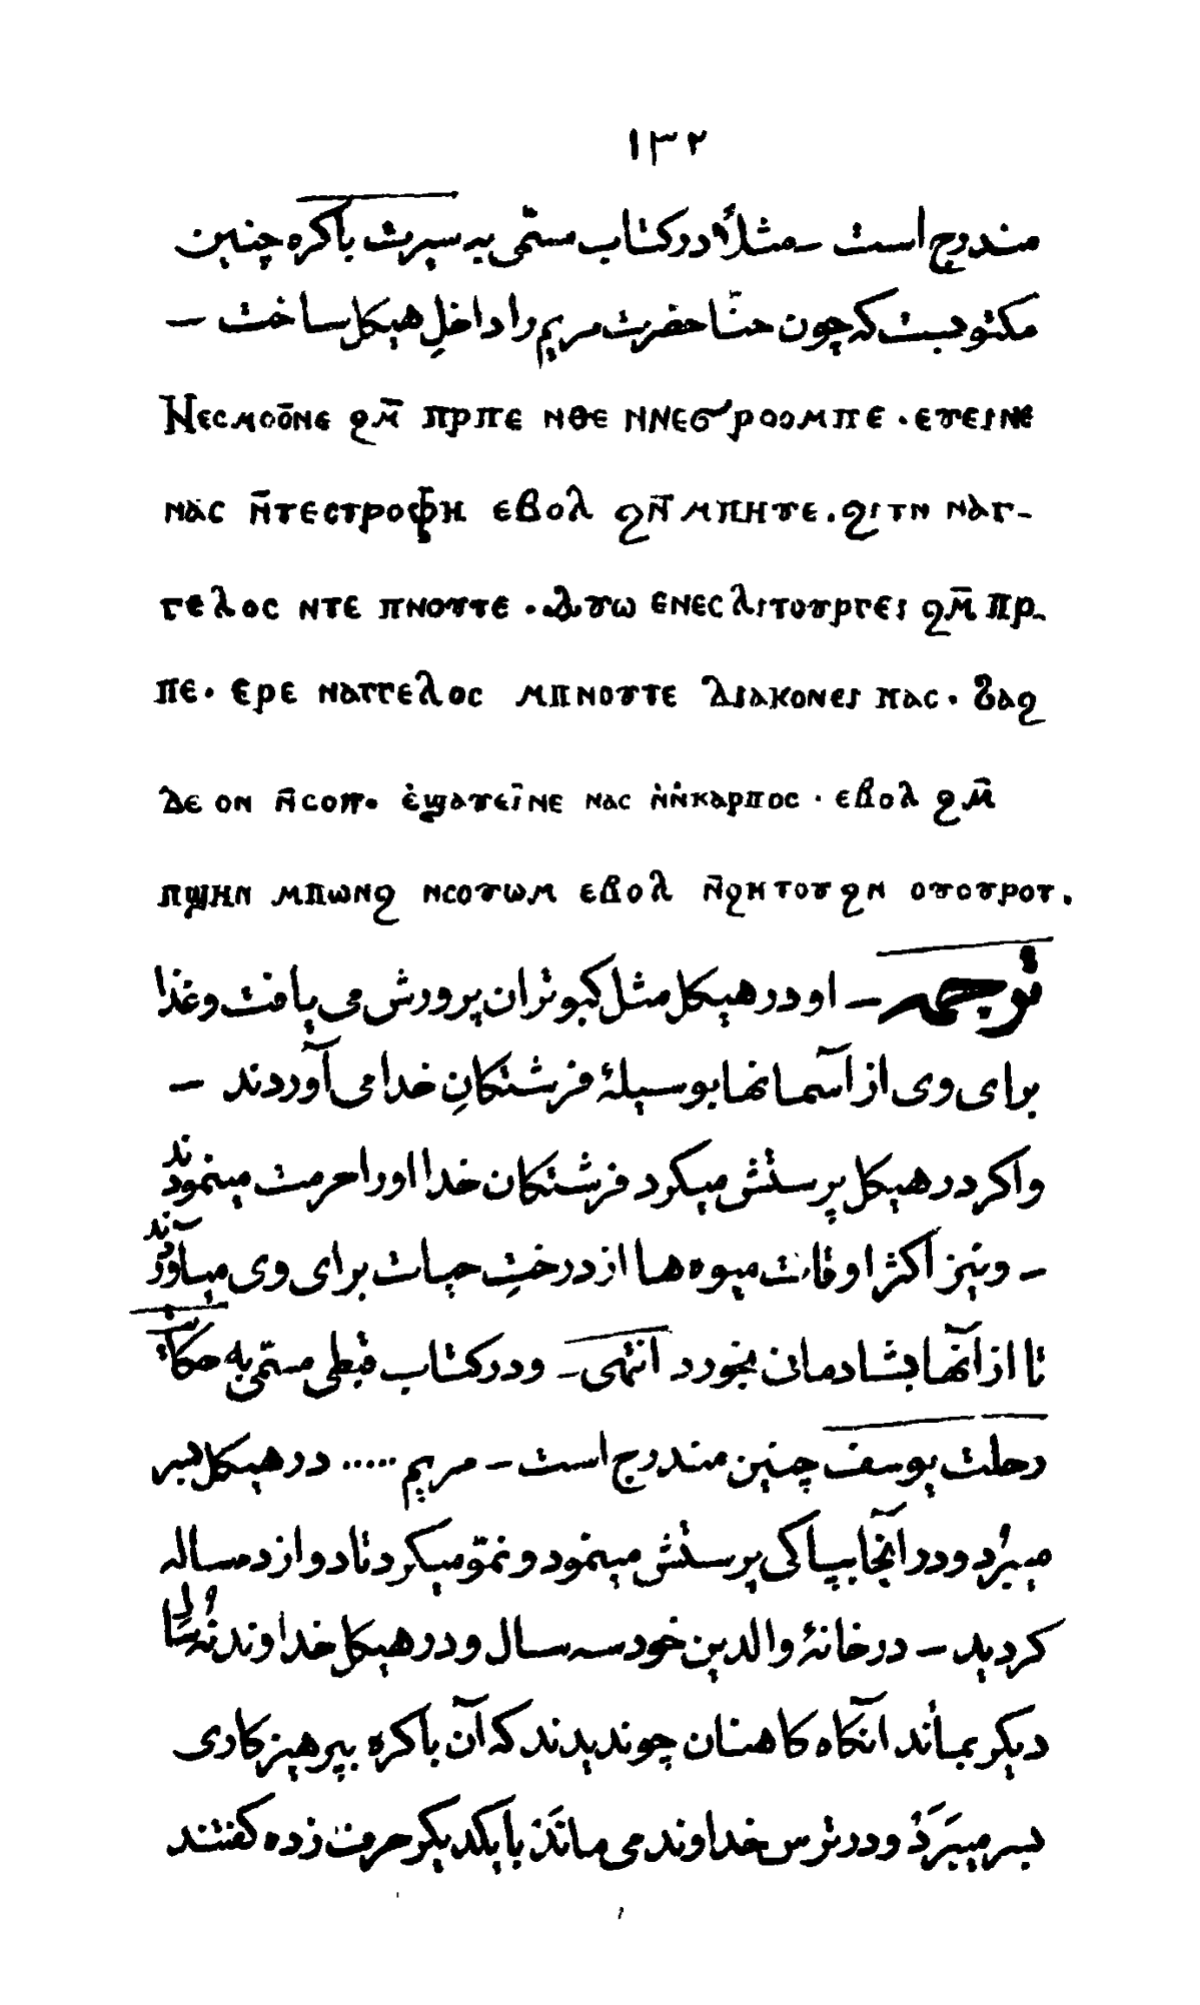 ١٣٢
مندرج است – مثلاً در کتاب مسمّی به سیرت باکره چنین
مکتوبست که چون حنّا حضرت مریم را داخلِ هیکل ساخت –
Ⲛⲉⲥⲙⲟⲟ̄ⲛⲉ ϩⲙ̄ ⲡⲣⲡⲉ ⲛⲑⲉ ⲛⲛⲉϭⲣⲟⲟⲙⲡⲉ · ⲉⲩⲉⲓⲛⲉ
ⲛⲁⲥ ⲛ̄ⲧⲉⲥⲧⲣⲟⲫⲏ ⲉⲃⲟⲗ ϩⲛ̄ ⲙⲡⲏⲩⲉ . ϩⲓⲧⲛ ⲛⲁⲅ-
ⲅⲉⲗⲟⲥ ⲛⲧⲉ ⲡⲛⲟⲩⲧⲉ · ⲁⲩⲱ ⲉⲛⲉⲥⲗⲓⲧⲟⲩⲣⲅⲉⲓ ϩⲙ̄ ⲡⲣ-
ⲡⲉ · ⲉⲣⲉ ⲛⲁⲅⲅⲉⲗⲟⲥ ⲙⲡⲛⲟⲩⲧⲉ ⲇⲓⲁⲕⲟⲛⲉⲓ ⲛⲁⲥ · ϩⲁϩ
ⲇⲉ ⲟⲛ ⲛ̄ⲥⲟⲡ · ⲉ̇ϣⲁⲩⲉⲓ̄ⲛⲉ ⲛⲁⲥ ⲛ̇ⲛ̇ⲕⲁⲣⲡⲟⲥ · ⲉⲃⲟⲗ ϩⲙ̄
ⲡϣⲏⲛ ⲙⲡⲱⲛϩ ⲛⲥⲟⲩⲱⲙ ⲉⲃⲟⲗ ⲛ̄ϩⲏⲧⲟⲩ ϩⲛ ⲟⲩⲟⲩⲣⲟⲧ .
ترجمه – او در هیکل مثل کبوتران پرورش می یافت و غذا
برای وی از آسمانها بوسیلهٔ فرشتکانِ خدا می آوردند –
واکر در هیکل پرستش میکرد فرشتکان خدا او را حرمت مینمودند
– و نیز اکثر اوقات میوه ها از درختِ حیات برای وی میآوردند
تا از آنها بشادمانی بخورد انتهی – و در کتاب قبطی مسمّی به حکایت
رحلت یوسف چنین مندرج است – مریم ..... در هیکل بسر
میبرد و در آنجا بپاکی پرستش مینمود و نموّ میکرد تا دوازده ساله
کردید – در خانهٔ والدین خود سه سال و در هیکل خداوند نه سال
دیکر بماند آنکاه کاهنان چون دیدند که آن باکره بپرهیزکاری
بسر میبَرَد و در ترس خداوند می مانَد با یکدیکر حرف زده کفتند